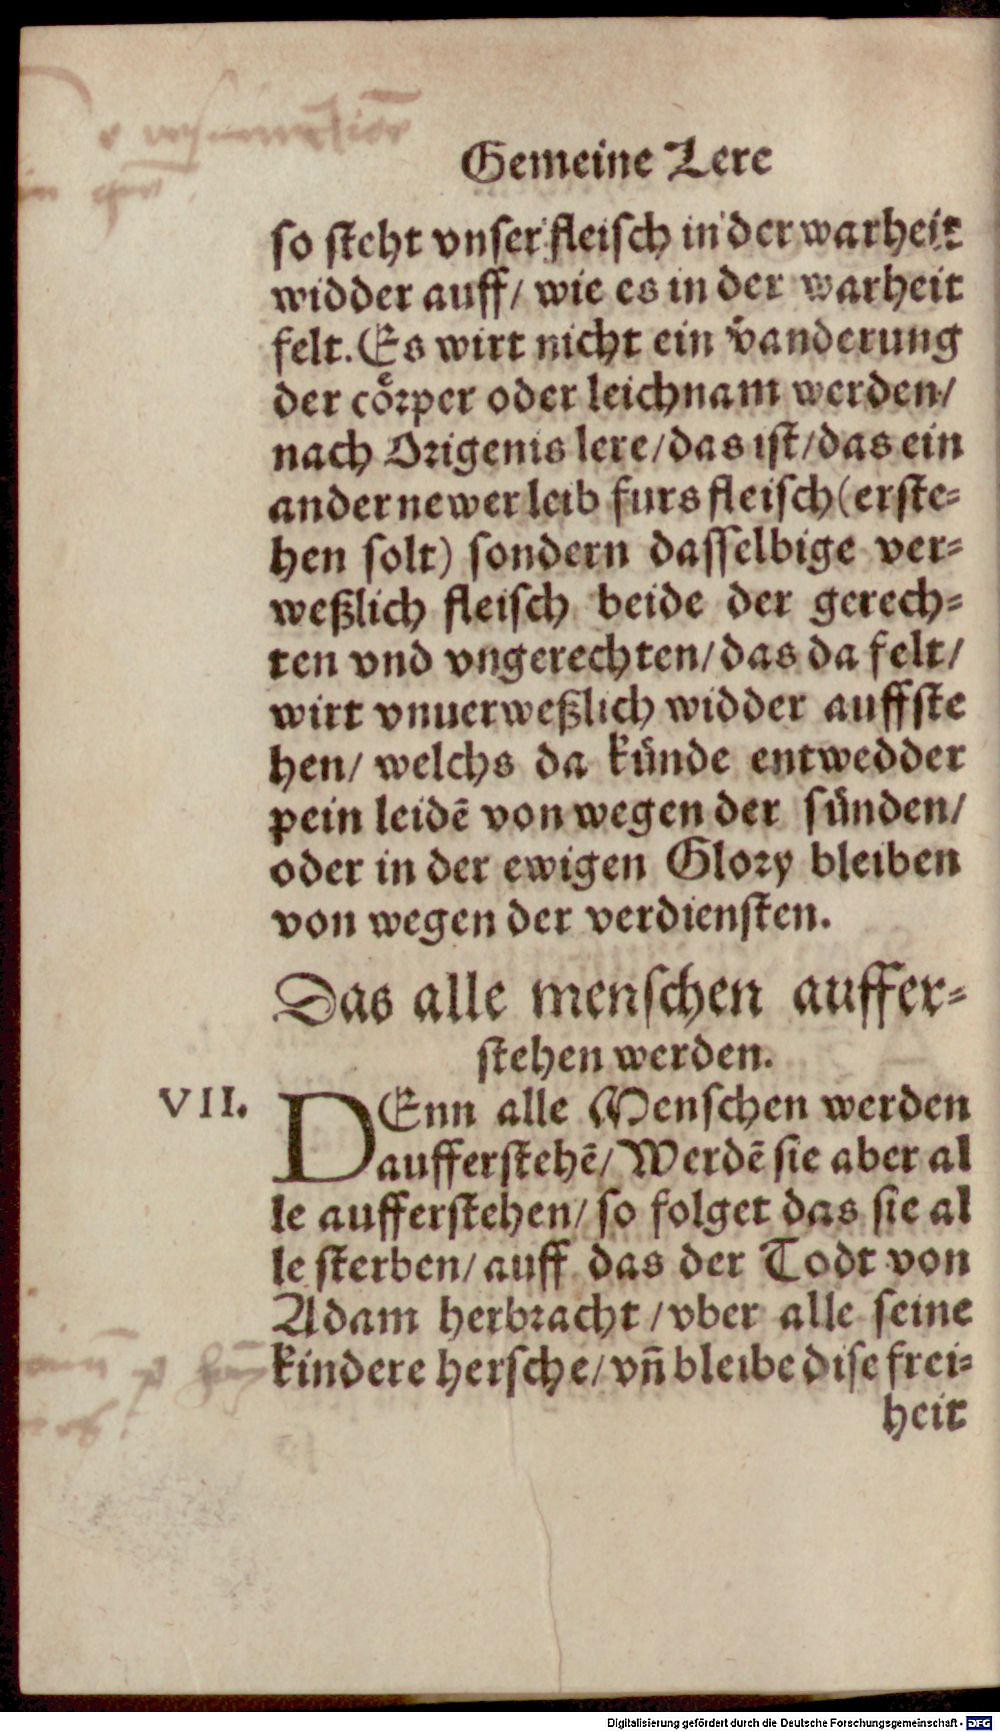 Gemeine Lere
so steht vnser fleisch in der warheit
widder auff/ wie es in der warheit
felt. Es wirt nicht ein vͤanderung
der coͤrper oder leichnam werden/
nach Origenis lere/das ist/das ein
ander newer leib furs fleisch (erste=
hen solt) sondern dasselbige ver=
weßlich fleisch beide der gerech=
ten vnd vngerechten/das da felt/
wirt vnuerweßlich widder auffste
hen/ welchs da kuͤnde entwedder
pein leidẽ von wegen der suͤnden/
oder in der ewigen Glory bleiben
von wegen der verdiensten.
Das alle menschen auffer=
stehen werden.
VII. DEnn alle Menschen werden
aufferstehẽ/ Werdẽ sie aber al
le aufferstehen/ so folget das sie al
le sterben/ auff das der Todt von
Adam herbracht /vber alle seine
kindere hersche/ vñ bleibe dise frei=
heit
Digitalisierung gefördert durch die Deutsche Forschungsgemeinschaft - DFG